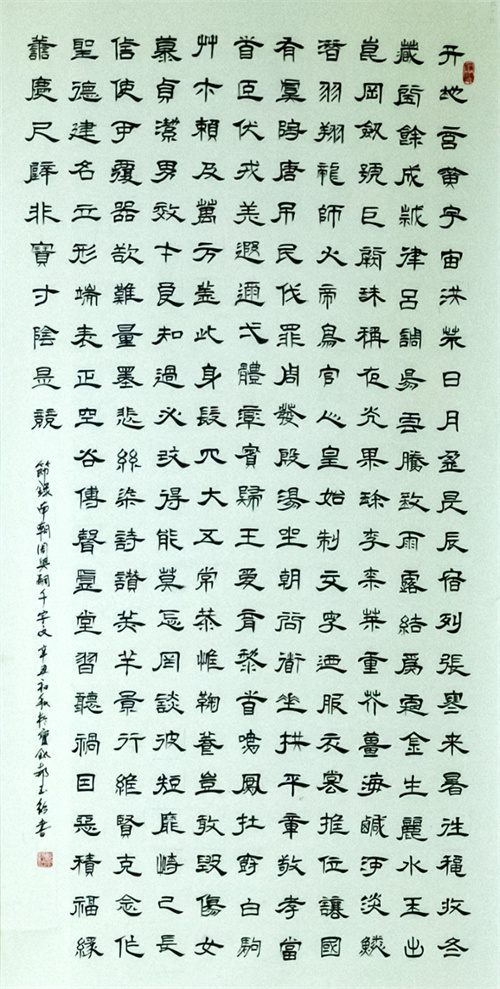 天地玄黄宇宙洪荒日月盈昃辰宿列張寒来暑往秋收冬
藏閏餘成歲律呂調陽雲騰致雨露結為霜金生麗水玉出
崑岡劍號巨闕珠稱夜光果珍李柰菜重芥薑海鹹河淡鱗
潛羽翔龍師火帝鳥官人皇始制文字迺服衣裳推位讓國
有虞陶唐吊民伐罪周發殷湯坐朝問道坐拱平章敬孝當
首臣伏戎羌遐邇弌體率賓歸王爱育黎首鳴鳳在樹白駒
艸木賴及萬方蓋此身髮四大五常恭惟鞠養豈敢毀傷女
慕貞潔男效才良知過必改得能莫忘罔談彼短靡恃己長
信使可覆器欲難量墨悲絲染詩讚羔羊景行維賢克念作
聖德建名立形端表正空谷傳聲虛堂習聽禍因惡積福緣
善慶尺璧非寶寸陰是競
節錄南朝周興嗣千字文辛丑初秋於